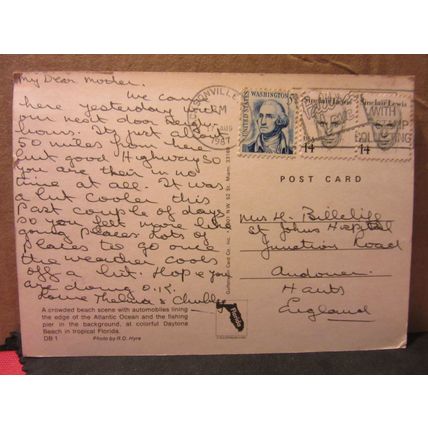 My Dear Mother.
We came
here yesterday with
our next door
hours. It's just about
50 miles from here
but good Highway so
you are there in no
time at all. It was
a bit cooler this
past couple of days
so you feel more like
going places. Lots of
places to go once
the weather cools
off a bit. Hope you
are doing O.K.
Love Thelma & Chubby
A crowded beach scene with automobiles lining
the edge of the Atlantic Ocean and the fishing
pier in the background, at colorful Daytona
Beach in tropical Florida.
DB 1 Photo by R.D. Hyre
Florida
JACKSONVILLE
AUG
1987
UNITED STATES
WASHINGTON
5¢
Sinclair Lewis
14
Sinclair Lewis
14
WITH
COLLECTING
POST CARD
Mrs H.
St Johns Hospital
Junction Road
Andover.
Hants
England